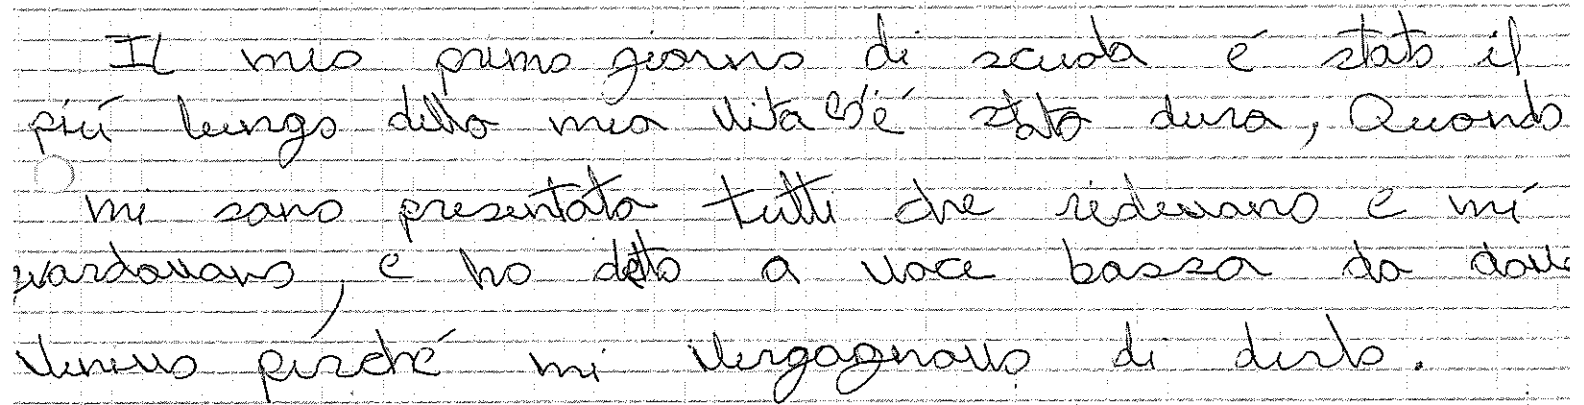 Il mio primo giorno di scuola é stato il
piú lungo della mia vita é stata dura, Quando
mi sono presentata tutti che ridevano e mi
uardavano, e ho detto a voce bassa da dove
venivo perché mi vergognavo di dirlo.